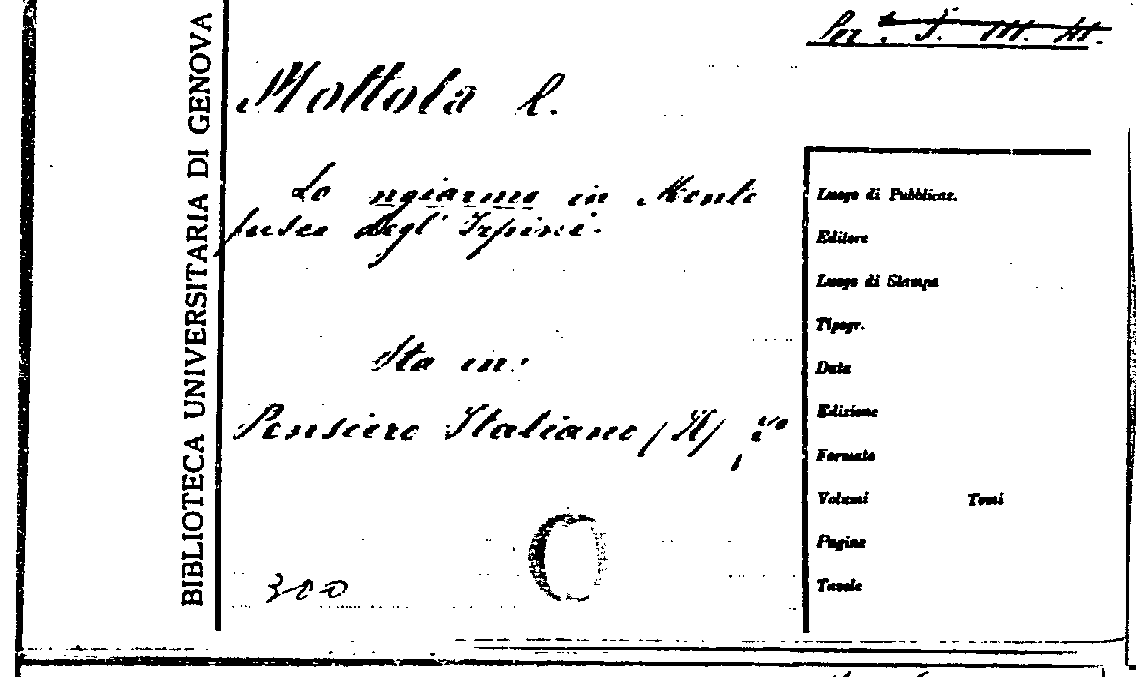 BIBLIOTECA UNIVERSITARIA DI GENOVA
Per.
Mottola C.
Lo ngiarmo in Monte
fusco degl' Irpini.
Sta in:
Pensiero Italiano (Il)
300
Luogo di Pubblicaz.
Editore
Luogo di Stampa
Tipogr.
Data
Edizione
Formato
Volumi Tomi
Pagine
Tavole